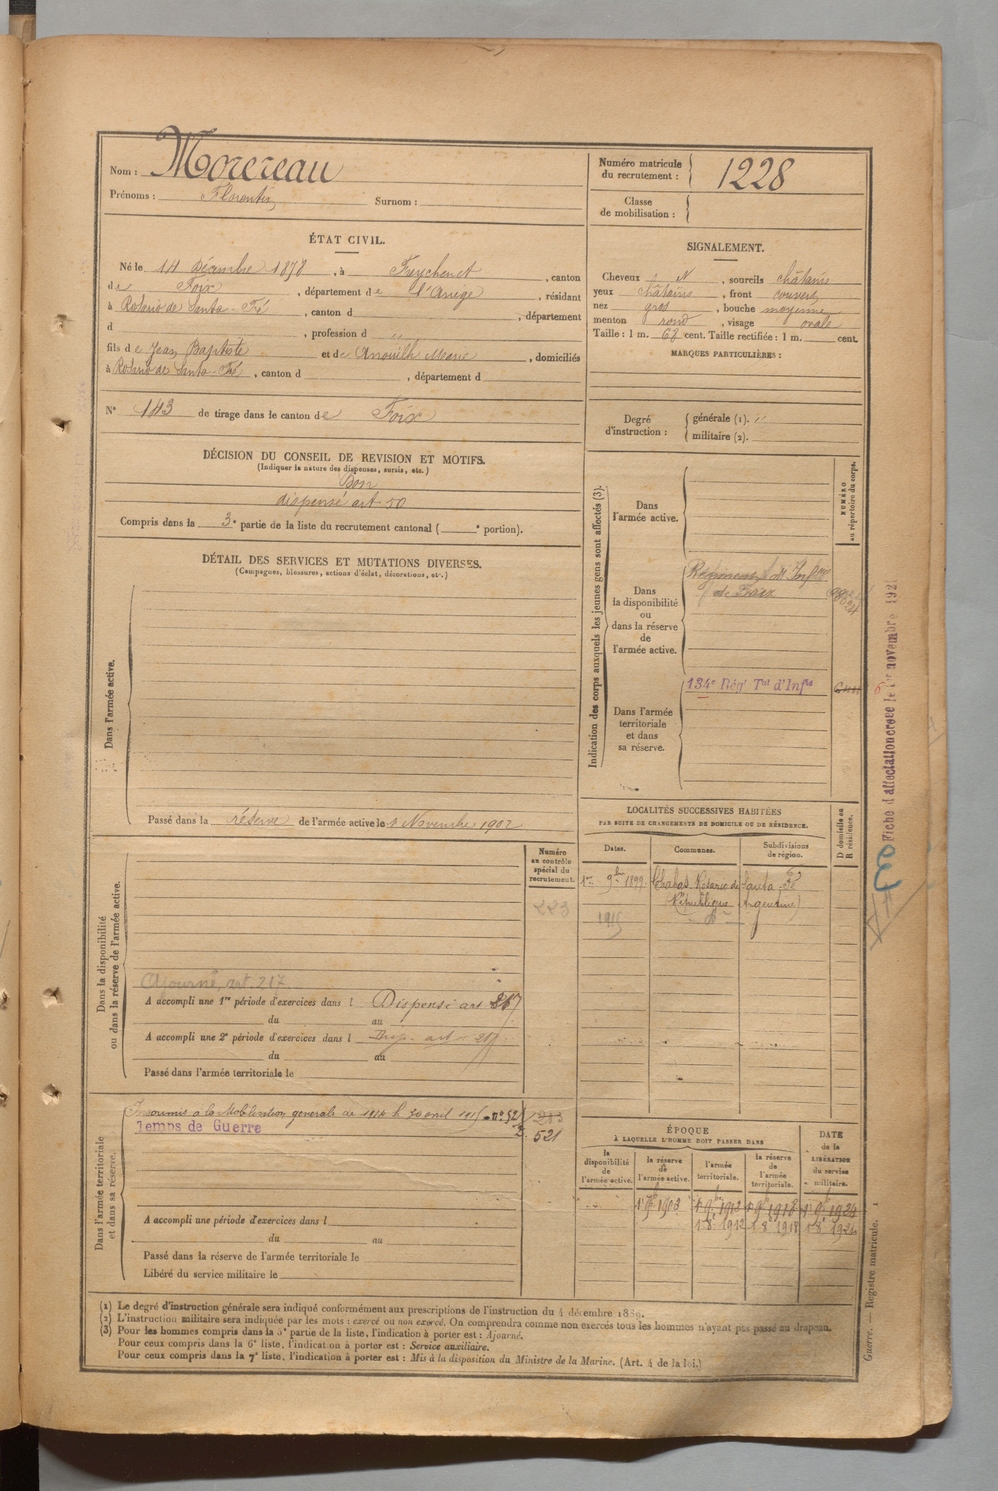 Nom : Morereau
Prénoms : Florentin Surnom :
Numéro matricule du recrutement : 1228
Classe de mobilisation :
ÉTAT CIVIL.
Né le 14 Décembre 1878, à Freychenet, canton
de Foix, département de l'Ariège, résidant
à Rosario de Santa-Fé, canton d , département
d , profession d
fils de Jean Baptiste et de Anouilh Marie, domiciliés
à Rosario de Santa-Fé, canton d , département d
N° 143 de tirage dans le canton de Foix
SIGNALEMENT.
Cheveux N, sourcils châtains
yeux châtains, front couvert
nez gros, bouche moyenne
menton rond, visage ovale
Taille : 1 m. 68 cent. Taille rectifiée : 1 m. cent.
MARQUES PARTICULIÈRES :
Degré d'instruction : générale (1).
militaire (2).
DÉCISION DU CONSEIL DE REVISION ET MOTIFS.
(Indiquer la nature des dispenses, sursis, etc.)
Bon
dispensé art 50
Compris dans la 3e partie de la liste du recrutement cantonal ( e portion).
DÉTAIL DES SERVICES ET MUTATIONS DIVERSES.
(Campagnes, blessures, actions d'éclat, décorations, etc.)
Dans l'armée active.
Passé dans la réserve de l'armée active le 1 Novembre 1902
Indication des corps auxquels les jeunes gens sont affectés (3).
NUMÉRO au répertoire du corps.
Dans l'armée active.
Dans la disponibilité ou dans la réserve de l'armée active.
Régiment d'Inf rie
de Foix
Dans l'armée territoriale et dans sa réserve.
134e Régt Tal d'Infie
Fiche d'affectation créée le 1er novembre 192
LOCALITÉS SUCCESSIVES HABITÉES
PAR SUITE DE CHANGEMENTS DE DOMICILE OU DE RÉSIDENCE.
D domicile ou R résidence.
Dates. Communes. Subdivisions de région.
1er 9bre 1899 Chabas Rosario de Santa Fé
(République Argentine)
1915 do
Numéro au contrôle spécial du recrutement.
223
Dans la disponibilité ou dans la réserve de l'armée active.
Ajourné, art. 217
A accompli une 1re période d'exercices dans l Dispensé art 217
du au
A accompli une 2e période d'exercices dans l Disp. art. 217
du au
Passé dans l'armée territoriale le
Dans l'armée territoriale et dans sa réserve.
Insoumis à la Mobilisation générale de 1914 le 30 avril 1915
Temps de Guerre
521
A accompli une période d'exercices dans l
du au
Passé dans la réserve de l'armée territoriale le
Libéré du service militaire le
ÉPOQUE
À LAQUELLE L'HOMME DOIT PASSER DANS
DATE de la LIBÉRATION du service militaire.
la disponibilité de l'armée active.
la réserve de l'armée active.
l'armée territoriale.
la réserve de l'armée territoriale.
1er 9bre 1902 1er 9bre 1912 1er 9bre 1918 1er 9bre 1924
1 8e 1912 1 8e 1918 1 8e 1924
(1) Le degré d'instruction générale sera indiqué conformément aux prescriptions de l'instruction du 4 décembre 1889.
(2) L'instruction militaire sera indiquée par les mots : exercé ou non exercé. On comprendra comme non exercés tous les hommes n'ayant pas passé au drapeau.
(3) Pour les hommes compris dans la 5e partie de la liste, l'indication à porter est : Ajourné.
Pour ceux compris dans la 6e liste, l'indication à porter est : Service auxiliaire.
Pour ceux compris dans la 7e liste, l'indication à porter est : Mis à la disposition du Ministre de la Marine. (Art. 4 de la loi.)
Guerre. — Registre matricule. 1